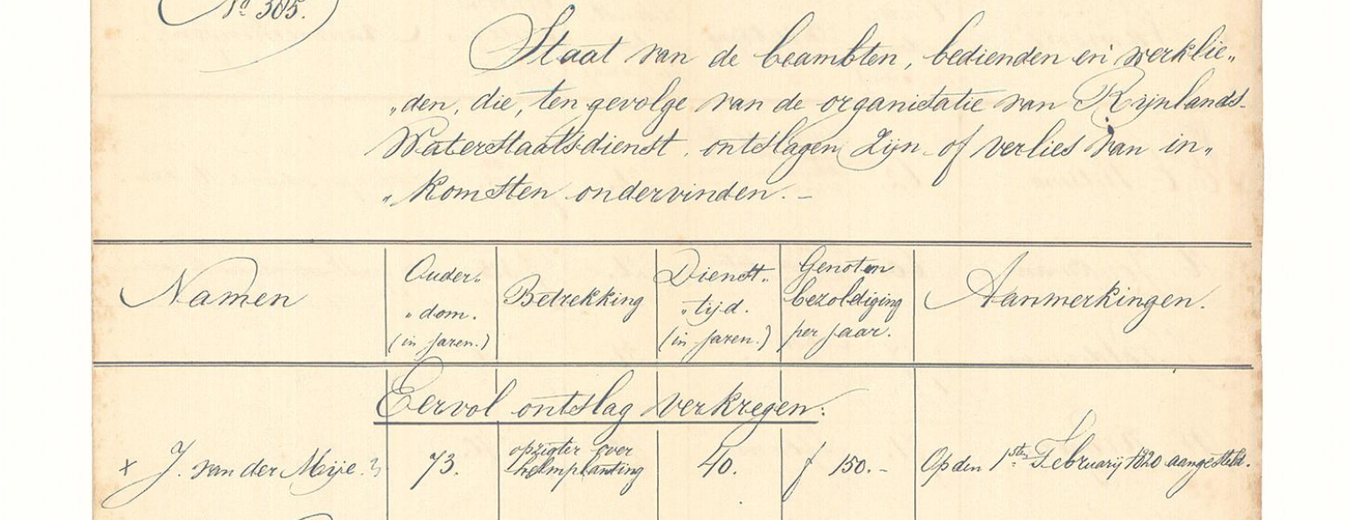 No. 305.
Staat van de beambten, bedienden en werklie„
„den, die, ten gevolge van de organisatie van Rijnlands-
Waterstaatsdienst, ontslagen zijn of verlies van in„
„komsten ondervinden. —
Namen
Ouder„
„dom.
(in jaren.)
Betrekking
Dienst„
„tijd.
(in jaren.)
Genoten
bezoldiging
per jaar.
Aanmerkingen.
Eervol ontslag verkregen:
+ J. van der Meije. 73. opzigter over 40. f 150.- Op den 1sten Februarij aangesteld.
helmplanting